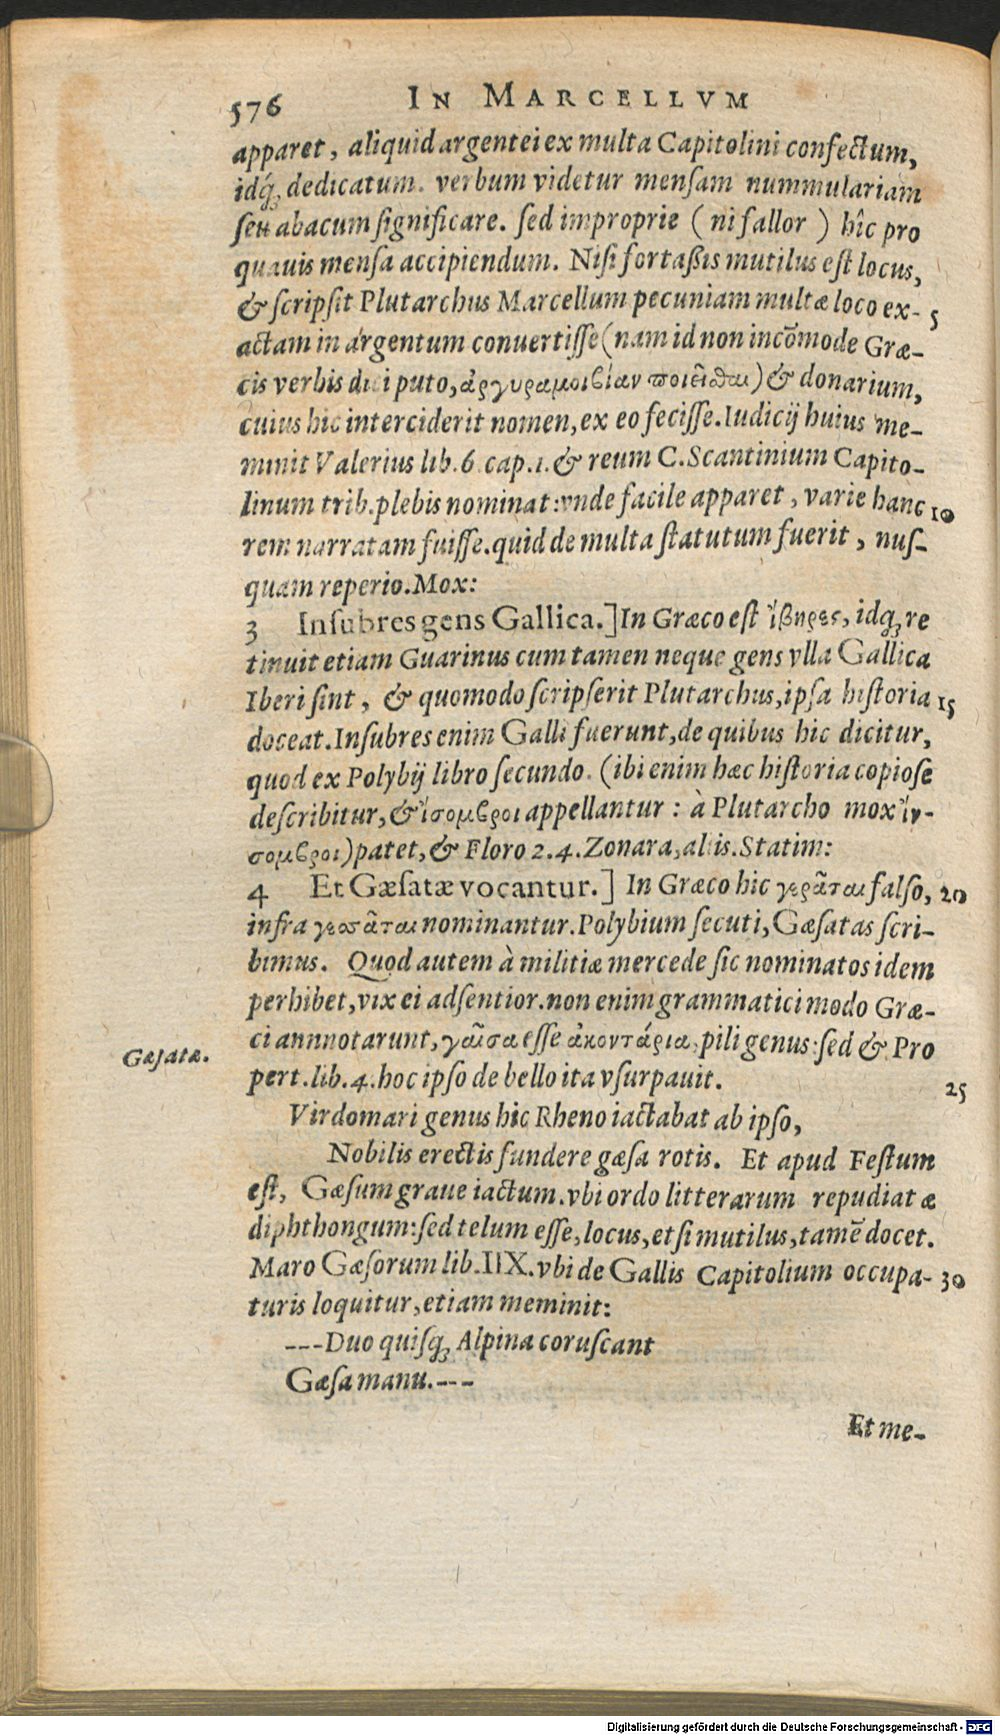 576 IN MARCELLVM
apparet, aliquid argentei ex multa Capitolini confectum,
idq́; dedicatum. verbum videtur mensam nummulariam
seu abacum significare. sed improprie (ni fallor) hîc pro
quauis mensa accipiendum. Nisi fortaßis mutilus est locus,
& scripsit Plutarchus Marcellum pecuniam multæ loco ex- 5
actam in argentum conuertisse (nam id non incõmode Græ-
cis verbis dici puto, ἀργυραμοιβίαν ποιεῖσθαι) & donarium,
cuius hic interciderit nomen, ex eo fecisse. Iudicij huius me-
minit Valerius lib. 6. cap. 1. & reum C. Scantinium Capito-
linum trib. plebis nominat: vnde facile apparet, varie hanc 10
rem narratam fuisse. quid de multa statutum fuerit, nus-
quam reperio. Mox:
3 Insubres gens Gallica.] In Græco est ἴβηρες, idq; re
tinuit etiam Guarinus cum tamen neque gens vlla Gallica
Iberi sint, & quomodo scripserit Plutarchus, ipsa historia 15
doceat. Insubres enim Galli fuerunt, de quibus hic dicitur,
quod ex Polybij libro secundo. (ibi enim hæc historia copiose
describitur, & ἴσομβροι appellantur: à Plutarcho mox ἴν-
σομβροι) patet, & Floro 2. 4. Zonara, aliis. Statim:
4 Et Gæsatæ vocantur.] In Græco hic γερᾶται falso, 20
infra γεσᾶται nominantur. Polybium secuti, Gæsatas scri-
bimus. Quod autem à militiæ mercede sic nominatos idem
perhibet, vix ei adsentior. non enim grammatici modo Græ-
ci annnotarunt, γαῖσα esse ἀκοντάρια, pili genus: sed & Pro
Gæsatæ.
pert. lib. 4. hoc ipso de bello ita vsurpauit. 25
Virdomari genus hic Rheno iactabat ab ipso,
Nobilis erectis fundere gæsa rotis. Et apud Festum
est, Gæsum graue iactum. vbi ordo litterarum repudiat æ
diphthongum: sed telum esse, locus, etsi mutilus, tamẽ docet.
Maro Gæsorum lib. IIX. vbi de Gallis Capitolium occupa- 30
turis loquitur, etiam meminit:
---Duo quisq; Alpina coruscant
Gæsa manu.---
Et me-
Digitalisierung gefördert durch die Deutsche Forschungsgemeinschaft - DFG